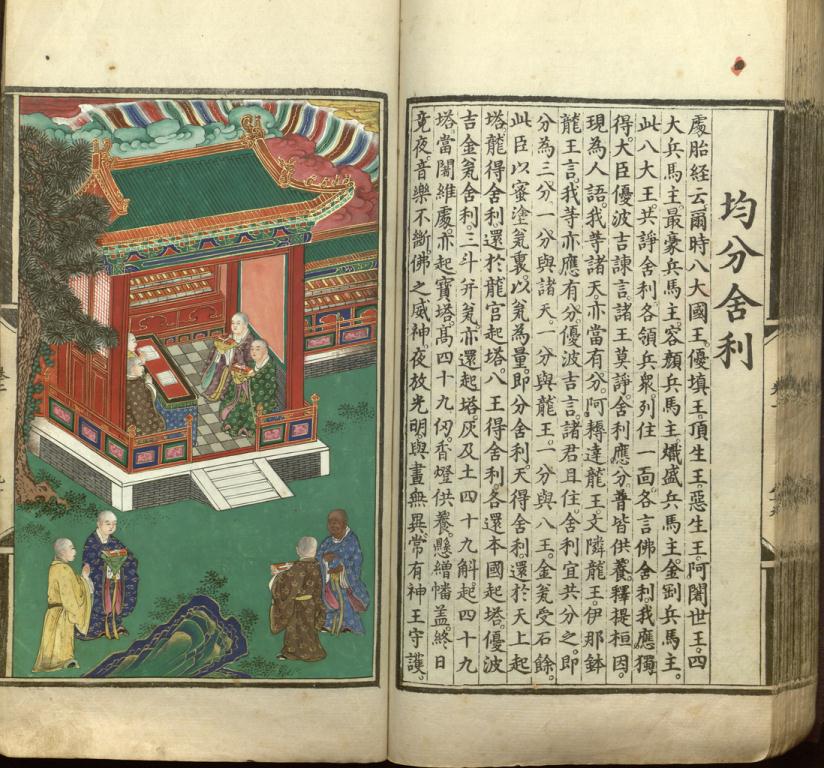 均分舍利
處胎経云。爾時八大國王。優填王。頂生王。惡生王。阿闍世王。四
大兵馬主。最豪兵馬主。容顔兵馬主。熾盛兵馬主。金剛兵馬主。
此八大王。共諍舍利。各領兵衆。列住一面。各言佛舍利。我應獨
得。大臣優波吉諫言。諸王莫諍。舍利應分。普皆供養。釋提桓因。
現為人語。我等諸天。亦當有分。阿耨達龍王。文隣龍王。伊那鉢
龍王言。我等亦應有分。優波吉言。諸君且住。舍利宜共分之。即
分為三分。一分與諸天。一分與龍王。一分與八王。金瓮受石餘。
此臣以蜜塗瓮裏。以瓮為量。即分舍利。天得舍利。還於天上起
塔。龍得舍利。還於龍宮起塔。八王得舍利。各還本國起塔。優波
吉金瓮舍利。三斗并瓮。亦還起塔。灰及土四十九斛。起四十九
塔。當闍維處。亦起寶塔。高四十九仞。香燈供養。懸繒幡盖。終日
竟夜。音樂不斷。佛之威神。夜放光明。與晝無異。常有神王守護。